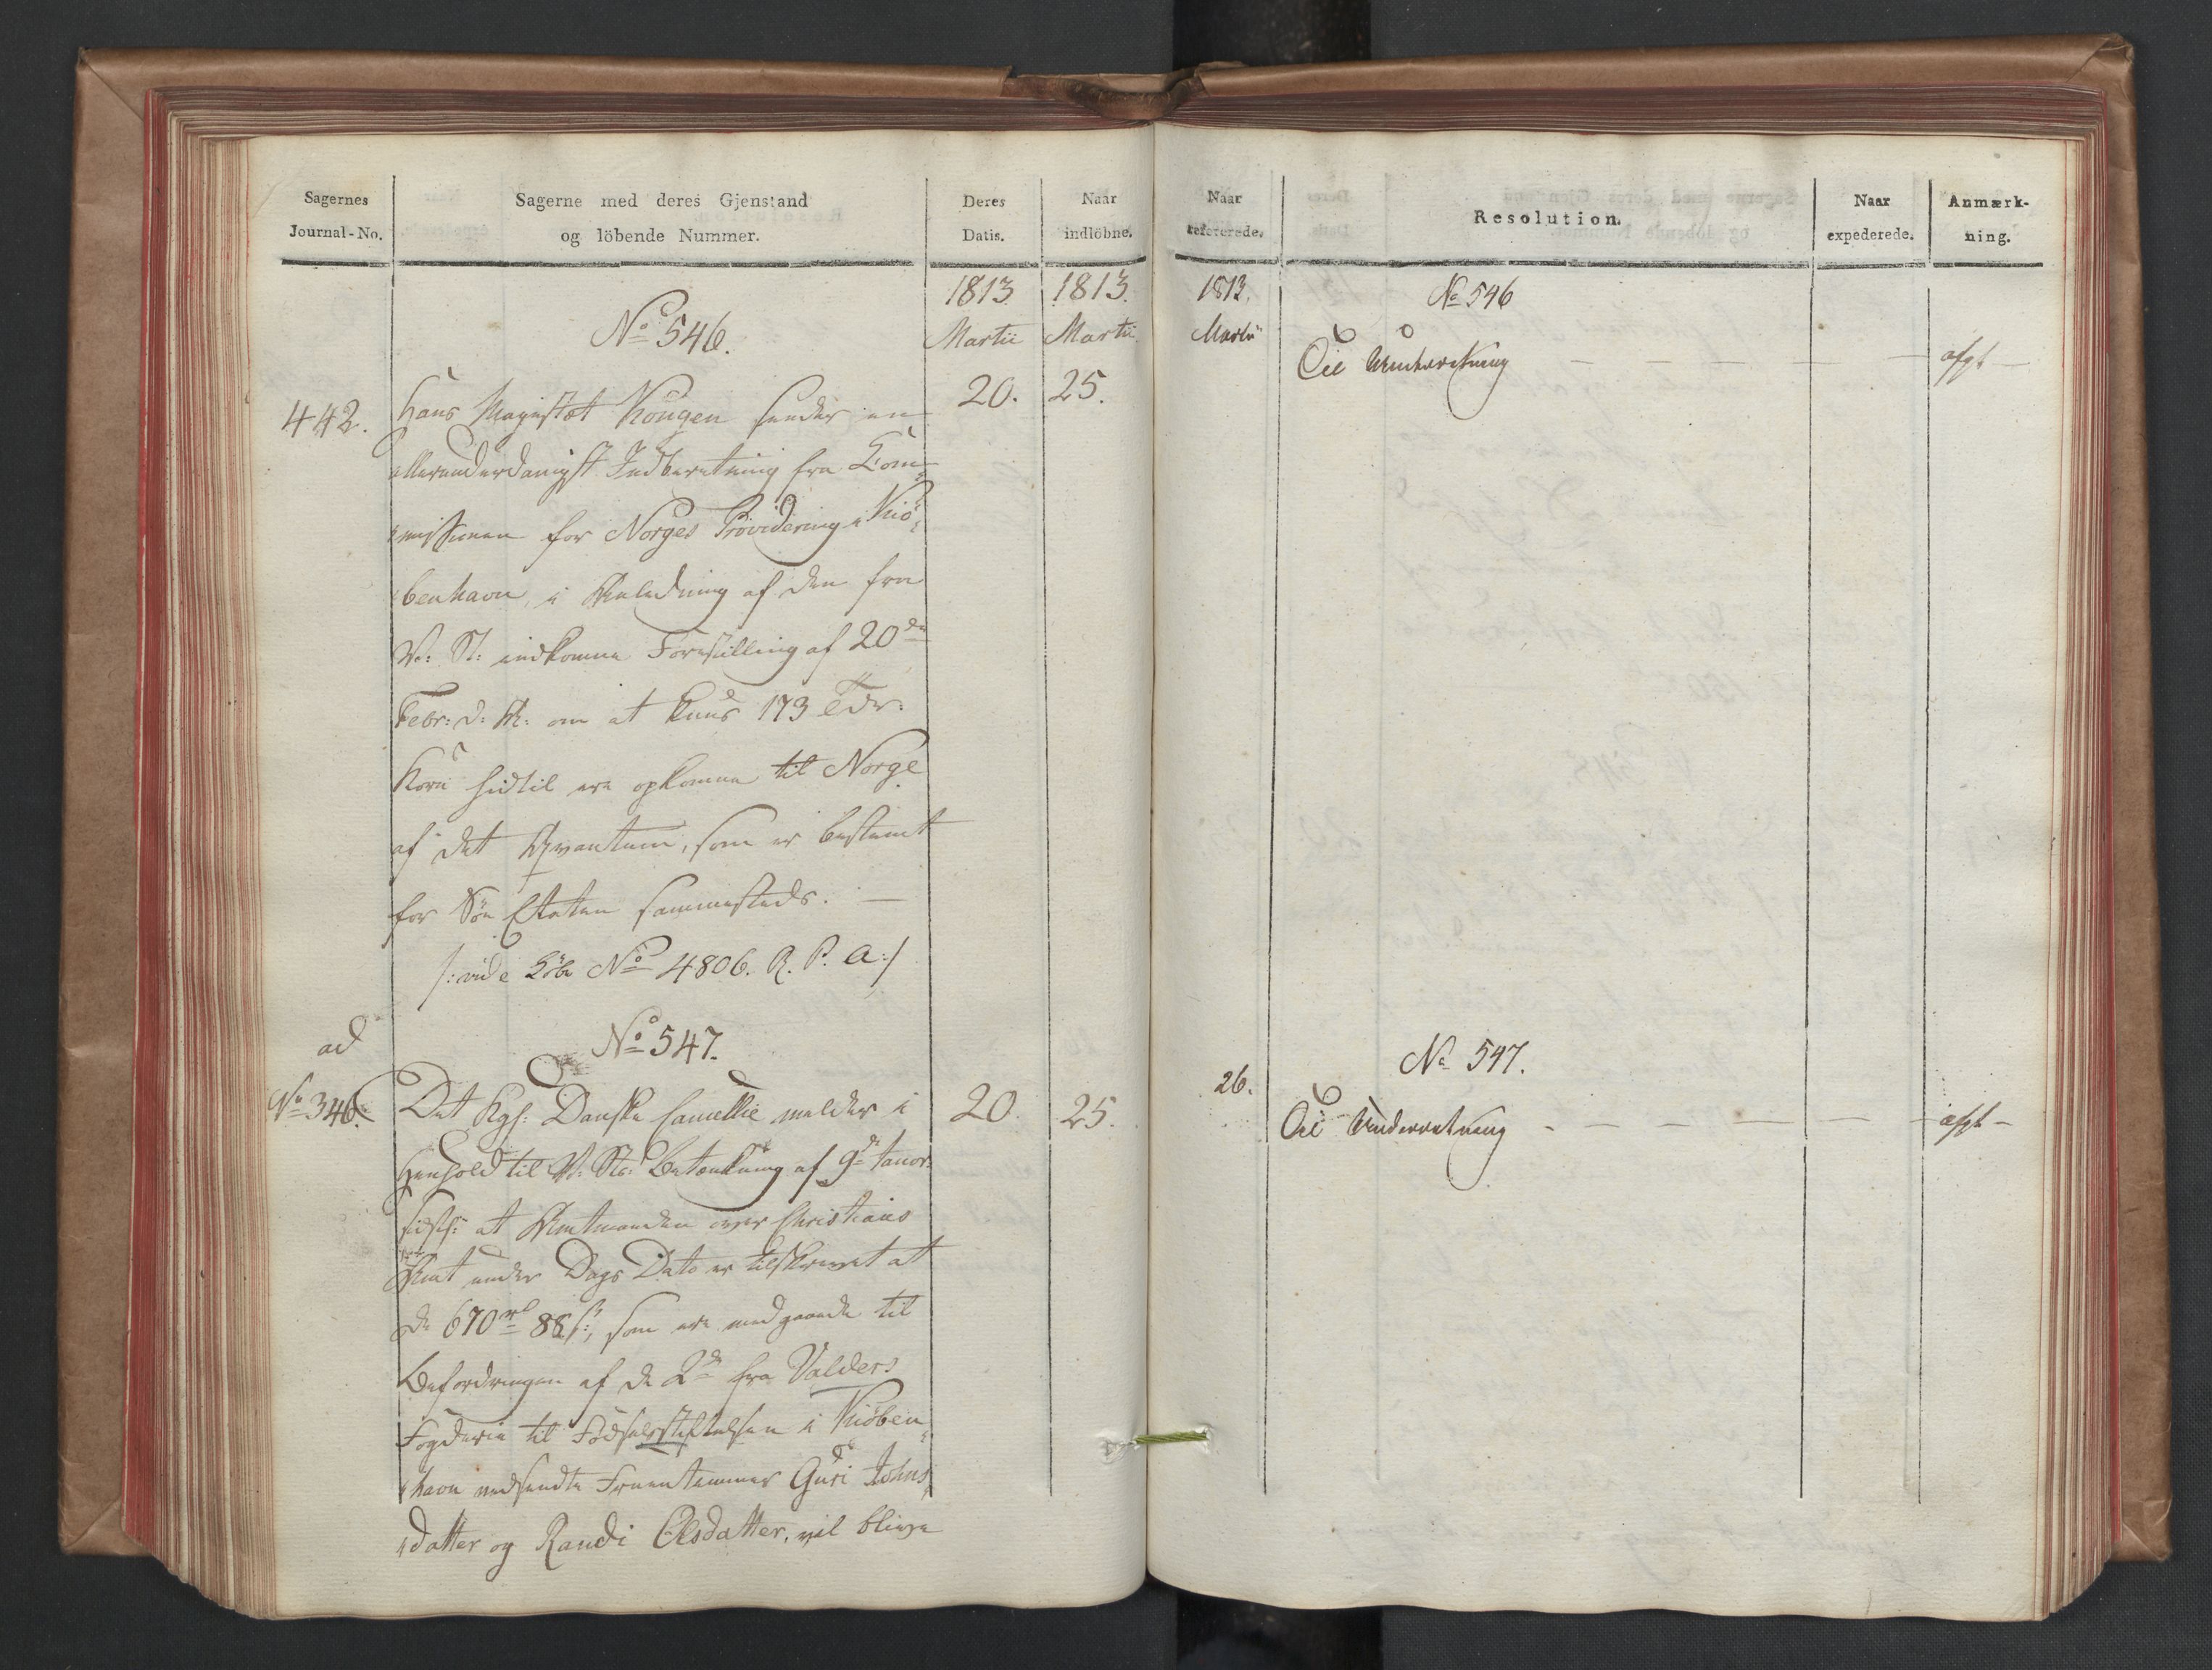 Sagernes
Journal-No.
Sagerne med deres Gjenstand
og löbende Nummer.
Deres
Datis.
Naar
indlöbne.
1813
Martii
1813.
Martii
No 546.
442.
20.
25.
Hans Majestæt Kongen sender en
allerunderdanigst Indberetning fra Com-
missionen for Norges Providering i Kiö-
benhavn, i Anledning af den fra
V: St: indkomne Forestilling af 20de
Febr: d: A: om at kuns 173 Tdr:
Korn hidtil ere opkomne til Norge
af det Qvantum, som er bestemt
for Söe Etaten sammesteds. —
/: vide Löbe No 4806. R. P. A:/
ad
No 346.
No 547.
20.
25.
Det Kgl: Danske Cancellie melder i
Henhold til V: Sts: Betænkning af 9de Janor:
sidstl: at Amtmanden over Christians
Amt under Dags Dato er tilskrevet at
de 670 rd 88 s:, som ere medgaaede til
Befordringen af de 2de fra Valders
Fogderie til Födselsstiftelsen i Kiöben-
havn nedsendte Fruentimmer Guri Johns-
datter og Randi Olsdatter, vil blive
Naar
refererede.
Resolution.
Naar
expederede.
Anmærk-
ning.
1813.
Martii
No 546
Til Underretning — — — — afgt —
No 547.
26.
Til Underretning - — — — — — afgt —